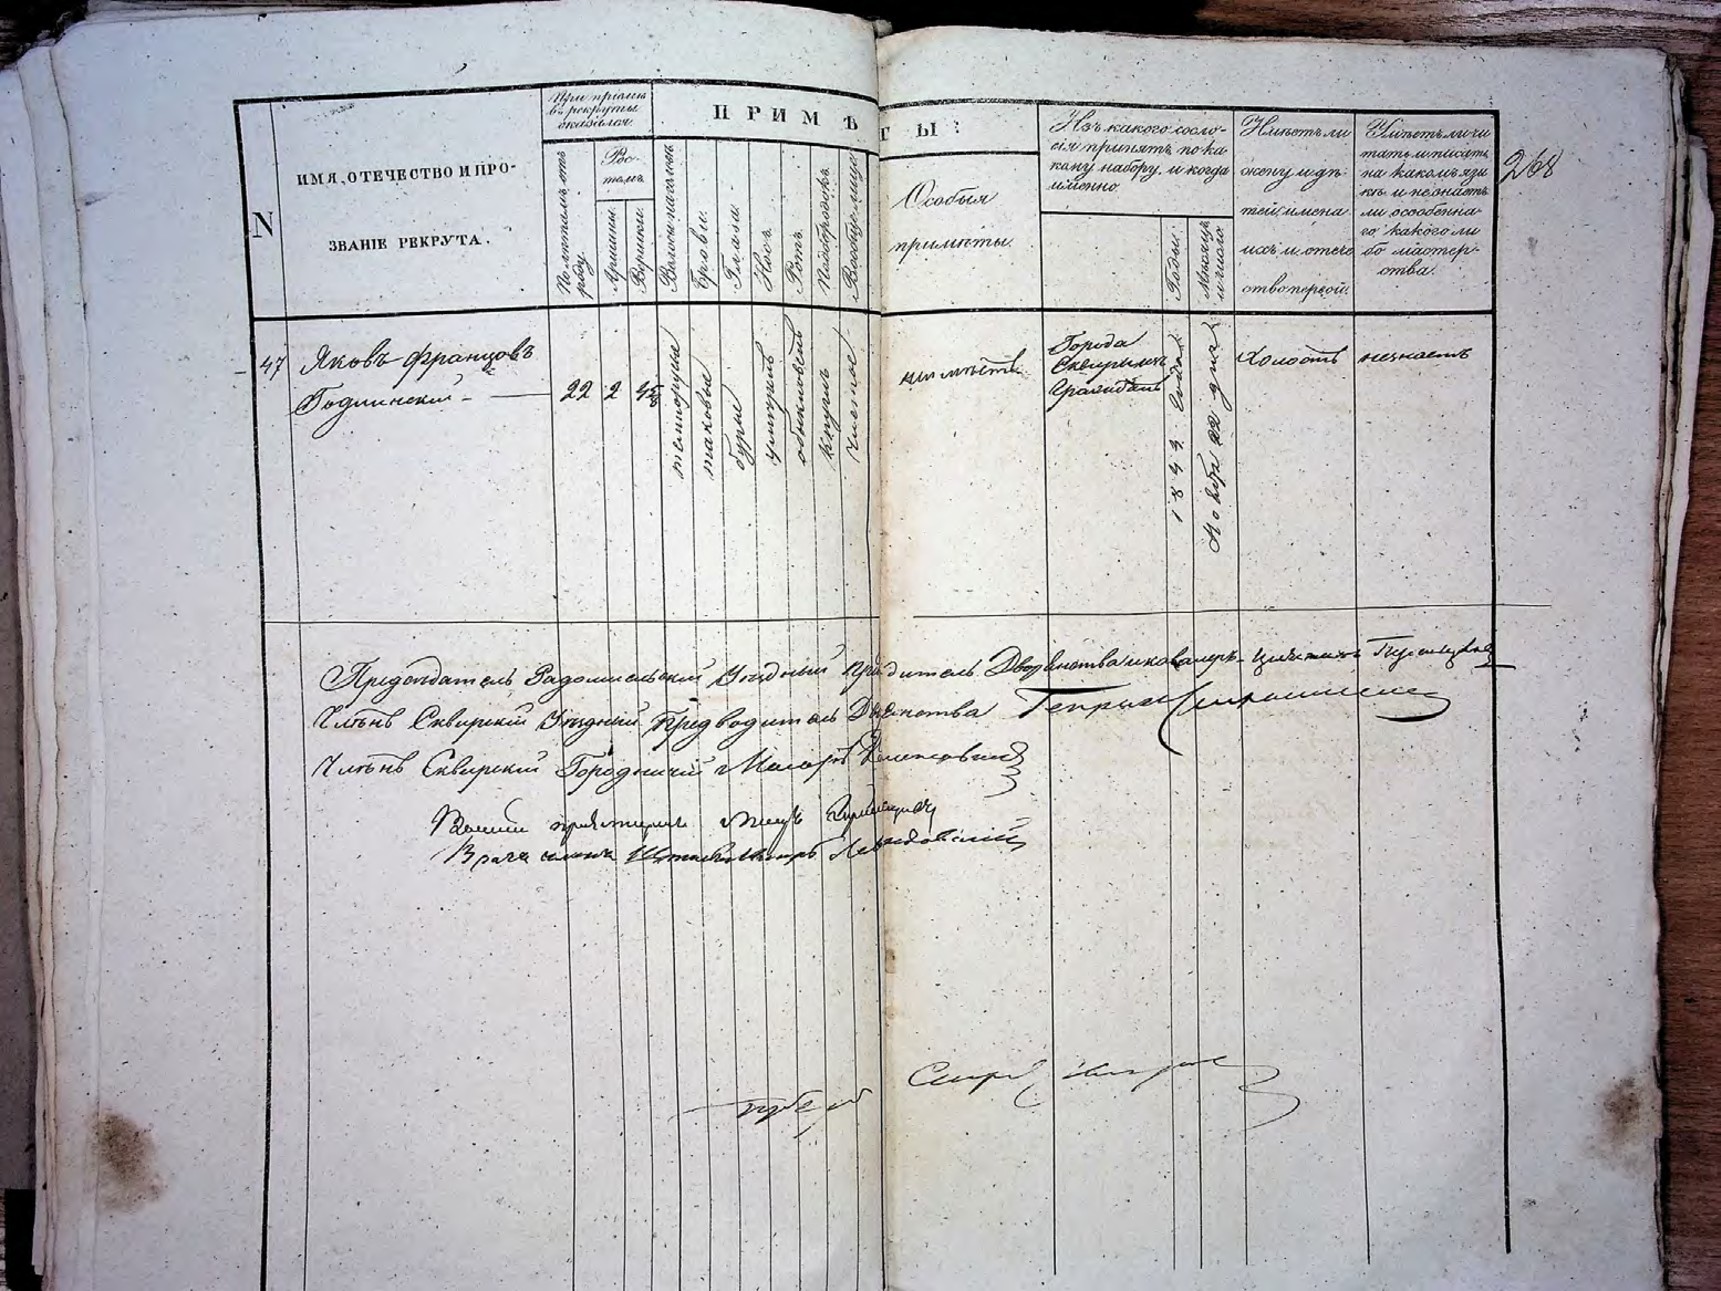 268
N
ИМЯ, ОТЕЧЕСТВО И ПРО-
ЗВАНІЕ РЕКРУТА.
При пріемѣ
въ рекруты
оказался.
По лѣтамъ отъ
роду.
Рос-
томъ
Аршины.
Вершки.
ПРИМѢТЫ:
Волосы на головѣ
Брови.
Глаза.
Носъ.
Ротъ.
Подбородокъ.
Вообще лицо
Особыя
примѣты.
Изъ какого сосло-
вія принятъ по ка-
кому набору и когда
именно.
Годы.
Мѣсяцъ
и число.
Имѣетъ ли
жену и дѣ-
тей, имена
ихъ и отече
ство первой.
Умѣетъ ли чи
тать и писать
на какомъ язы
кѣ и незнаетъ
ли особенна-
го какого ли
бо мастер-
ства.
47
Яковъ Францовъ
Годлинскій
22
2
4 5/8
темнорусые
таковые
бурые
умѣренъ
обыкновенъ
круглъ
чистое
не имѣетъ
Города
Сквиры
Гражданъ
1843 Года
Ноября 22 дня
Холостъ
незнаетъ
Предсѣдатель Радомысльскій Уѣздный Предводитель Дворянства и кавалеръ
Членъ Сквирскій Уѣздный Предводитель Дворянства Генрих
Членъ Сквирскій Городничій Маіоръ
Военный пріемщикъ
Врачъ членъ Штабъ Лекарь Левандовскій